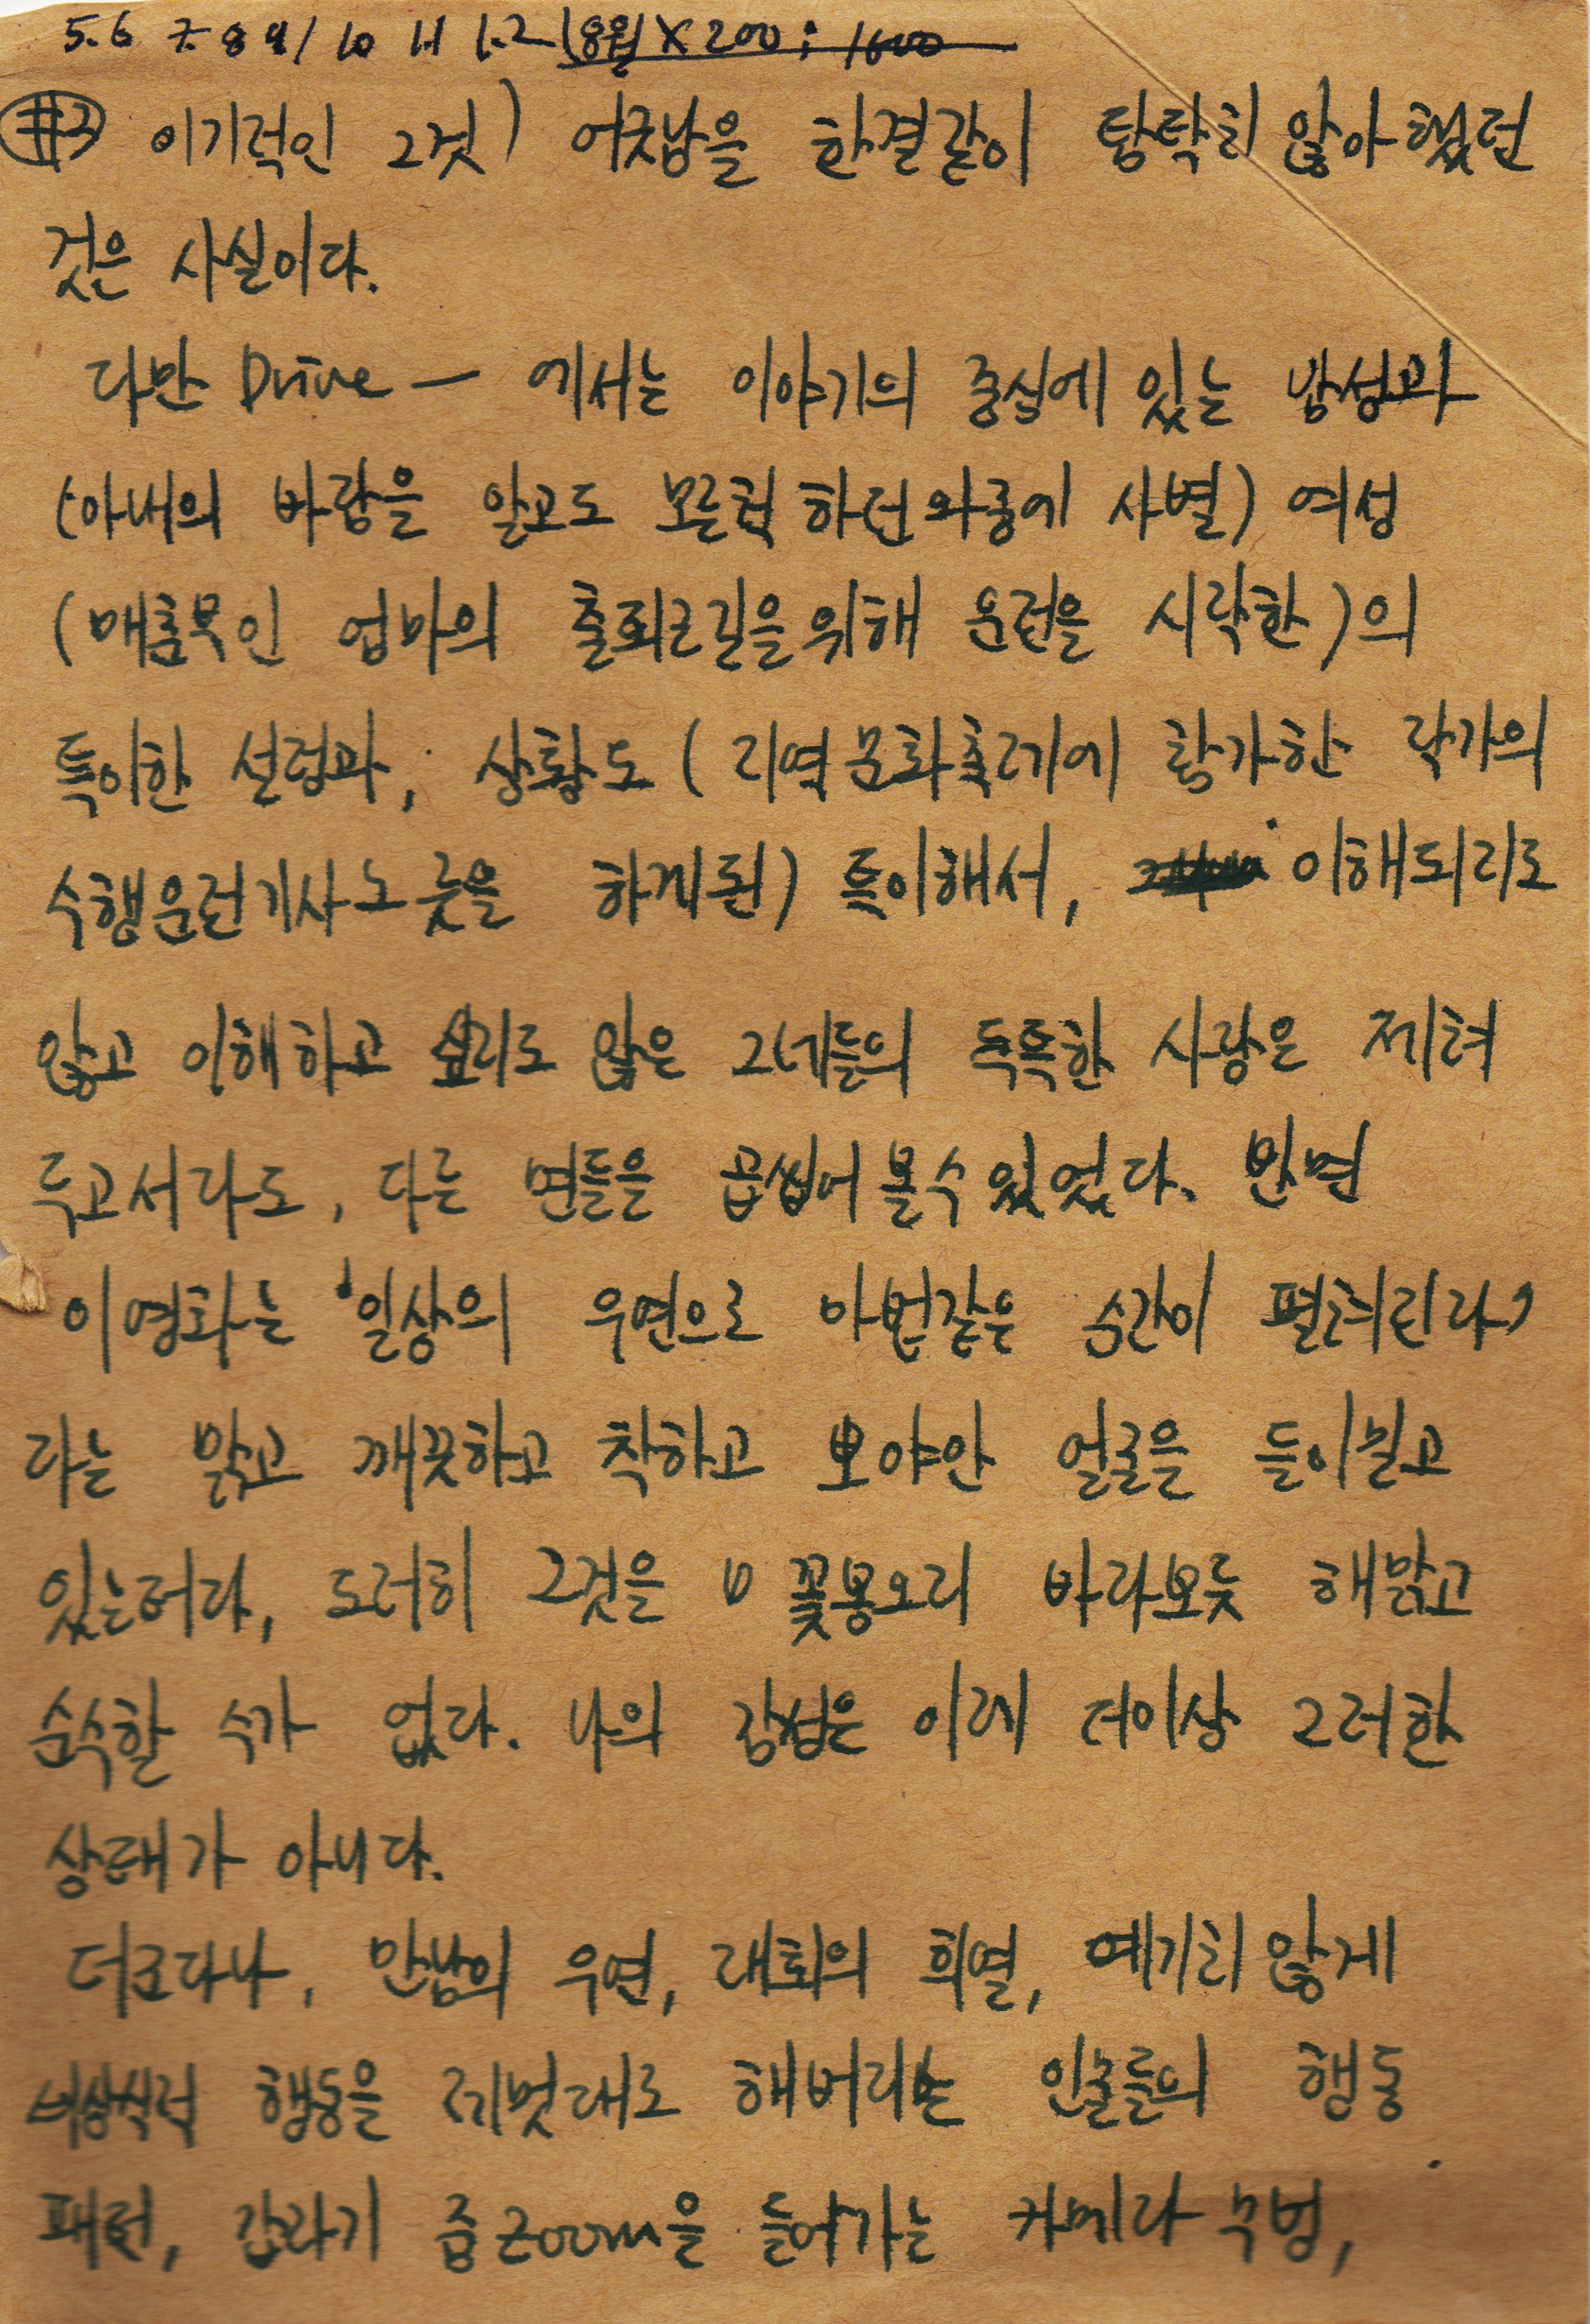 5.6 7.8 9/ 10 11 12 (8월 X 200 : 1600
#3 이기적인 그것) 어긋남을 한결같이 탐탁치 않아 했던
것은 사실이다.
다만 Drive — 에서는 이야기의 중심에 있는 남성과
(아내의 바람을 알고도 모른척 하던 와중에 사별) 여성
(매춘부인 엄마의 출퇴근길을 위해 운전을 시작한)의
특이한 설정과, 상황도 (지역문화축제에 참가한 작가의
수행운전기사노릇을 하게된) 특이해서, 이해되지도
않고 이해하고 싶지도 않은 그네들의 독특한 사랑은 제쳐
두고서라도, 다른 면들을 곱씹어 볼 수 있었다. 반면
이 영화는 '일상의 우연으로 마법같은 순간이 펼쳐진다'
라는 맑고 깨끗하고 착하고 뽀야안 얼굴을 들이밀고
있는데다, 도저히 그것을 꽃봉오리 바라보듯 해맑고
순수할 수가 없다. 나의 감성은 이제 더이상 그러한
상태가 아니다.
더군다나, 만남의 우연, 재회의 희열, 예기치 않게
비상식적 행동을 제멋대로 해버리는 인물들의 행동
패턴, 갑자기 줌 zoom을 들어가는 카메라 수법,